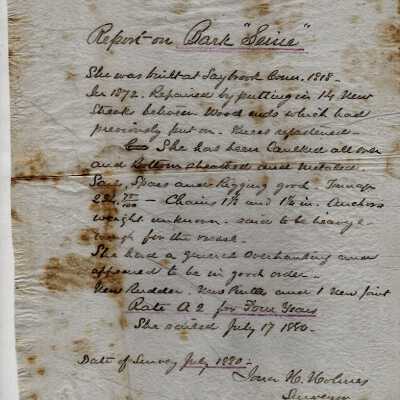 Report on Bark "Seine"
She was built at Saybrook Conn. 1818 -
In 1872. Repaired by putting in 14 New
Streaks between Wood ends which had
previously put on. Pieces refastened -
She has been Caulked all over
and Bottom sheathed and Metaled.
Sails, Spars and Rigging good. Tonnage
234. - Chains 1 1/4 and 1 1/8 in. Anchors
weight unknown. said to be heavy
for the vessel.
She had a general Overhauling and
appeared to be in good order -
New Rudder. and 1 New
Rate A 2 for Four Years
She sailed July 17 1880 -
Date of Survey July 1880 -
H. Holmes
Surveyor